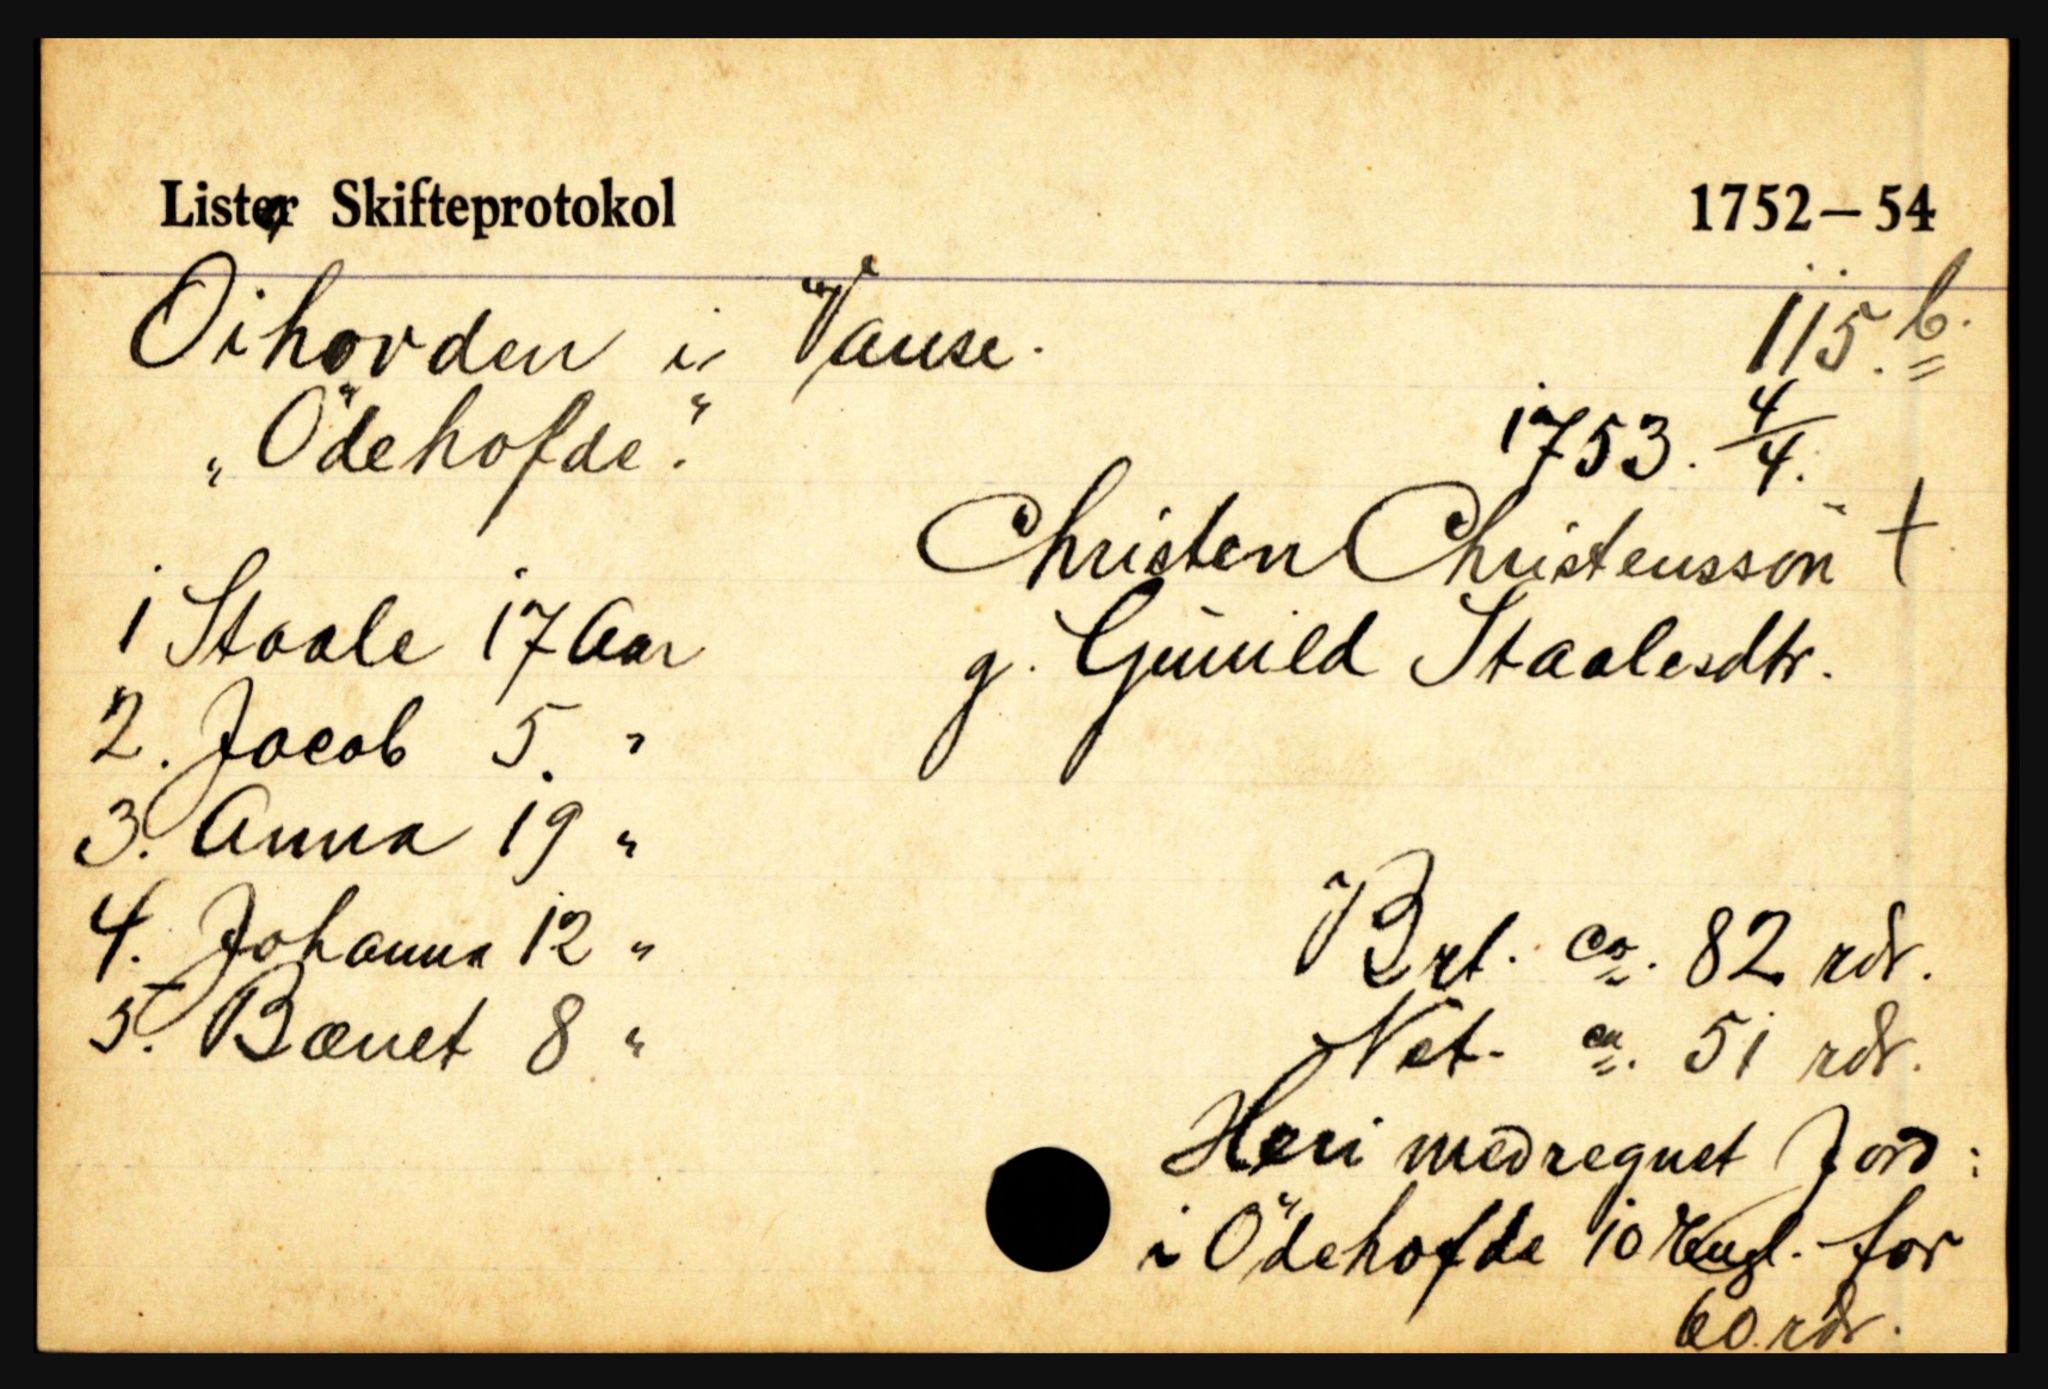 Lister Skifteprotokol 1752–54
Oihorden i Vanse. 115.b.
„Ödehofde". 1753. 4/4.
Christen Christensson †
1 Staale 17 Aar g. Gunild Staalesdtr.
2. Jacob 5. "
3. Anna 19 "
4. Johanna 12 " Brt. ca. 82 rdr.
5. Bænet 8 " Net. ca. 51 rdr.
Heri medregnet Jord:
i Ödehofde 10 Engl. for
60 rdr.